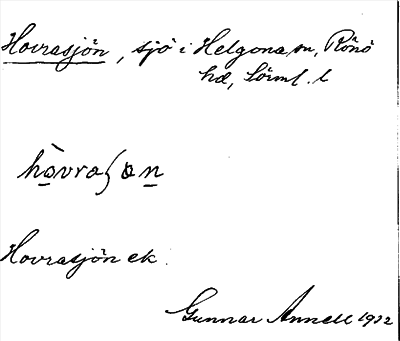 Hovrasjön, sjö i Helgona sn, Rönö
hd, Sörml. l
hòvraʃɷn
Hovrasjön ek.
Gunnar Annell 1932